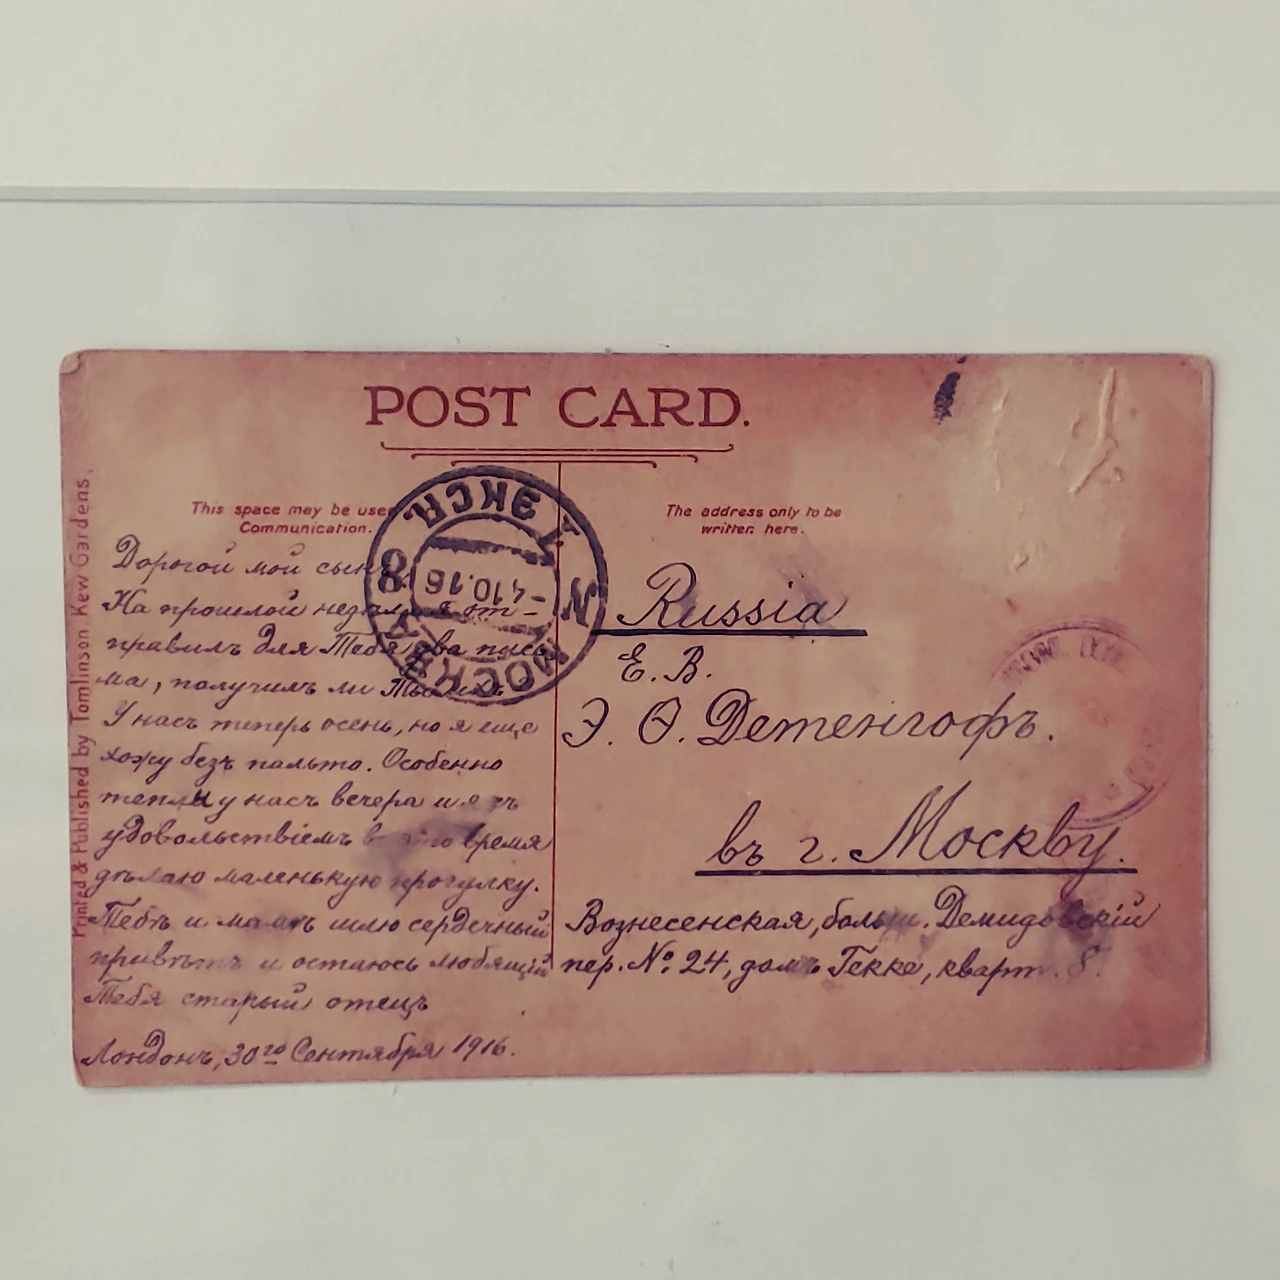 POST CARD.
This space may be use
Communication.
The address only to be
written here.
Printed & Published by Tomlinson, Kew Gardens,
Дорогой мой сынъ
На прошлой недѣлѣ я от-
правилъ для Тебя два пись
ма, получилъ ли Ты ихъ.
У насъ теперь осень, но я еще
хожу безъ пальто. Особенно
теплы у насъ вечера и я съ
удовольствіемъ в это время
дѣлаю маленькую прогулку.
Тебѣ и мамѣ шлю сердечный
привѣтъ и остаюсь любящій
Тебя старый отецъ
Лондонъ, 30го Сентября 1916.
МОСКВА 1 ЭКСП.
8
-4.10.16
Russia
Е. В.
Э. Ѳ. Детенгофъ.
въ г. Москву.
Вознесенская, больш. Демидовскій
пер. № 24, домъ Гекке, кварт. 8.